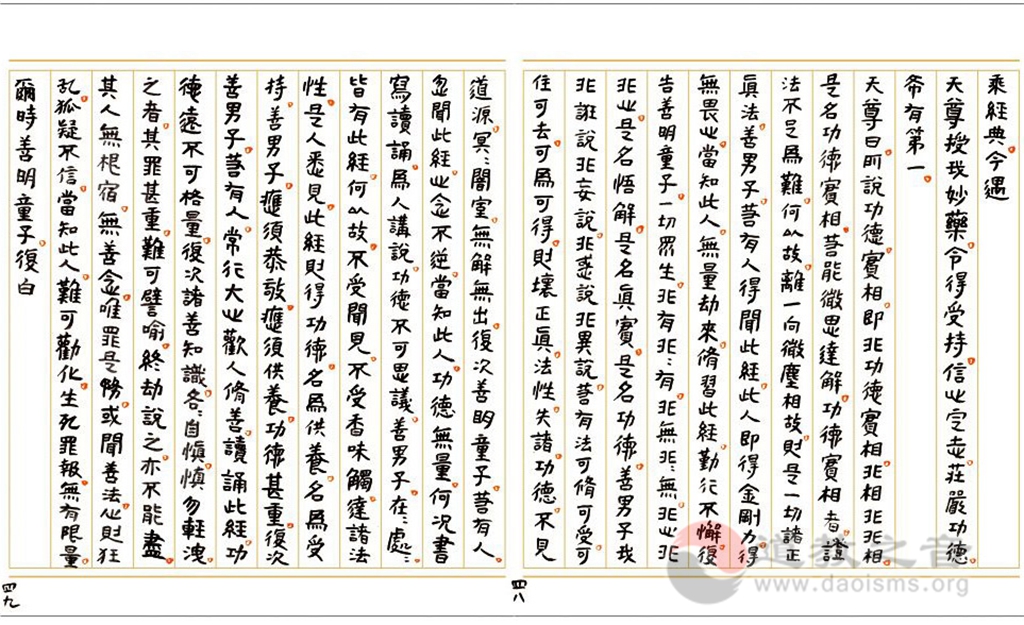 乘經典今遇
天尊授我妙藥令得受持信心定志莊嚴功德
希有第一
天尊曰所說功德實相即非功德實相非相非非相
是名功德實相若能微思達解功德實相者證
法不足為難何以故離一向微塵相故則是一切諸正
真法善男子若有人得聞此經此人即得金剛力得
無畏心當知此人無量劫來脩習此經勤行不懈復
告善明童子一切眾生非有非非有非無非非無非心非
非心是名悟解是名真實是名功德善男子我
非誑說非妄說非惑說非異說若有法可脩可受可
住可去可為可得則壞正真法性失諸功德不見
四八
道源冥冥闇室無解無出復次善明童子若有人
忽聞此經心念不逆當知此人功德無量何況書
寫讀誦為人講說功德不可思議善男子在在處處
皆有此經何以故不受聞見不受香味觸達諸法
性是人悉見此經則得功德名為供養名為受
持善男子應須恭敬應須供養功德甚重復次
善男子若有人常行大心歡人脩善讀誦此經功
德遠不可格量復次諸善知識各各自慎慎勿輕洩
之者其罪甚重難可譬喻終劫說之亦不能盡
其人無根宿無善念唯罪是務或聞善法心則狂
亂狐疑不信當知此人難可勸化生死罪報無有限量
爾時善明童子復白
四九
道教之音
www.daoisms.org